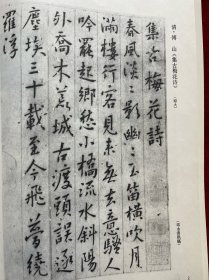 清·傅山《集古梅花诗》
集古梅花詩
春風淡〻影幽〻玉笛橫吹月
滿樓行客見来無去意騷人
吟罷起鄉愁小橋流水斜陽
外喬木荒城古渡頭誤逐
塵埃三十載至今飛夢繞
羅浮